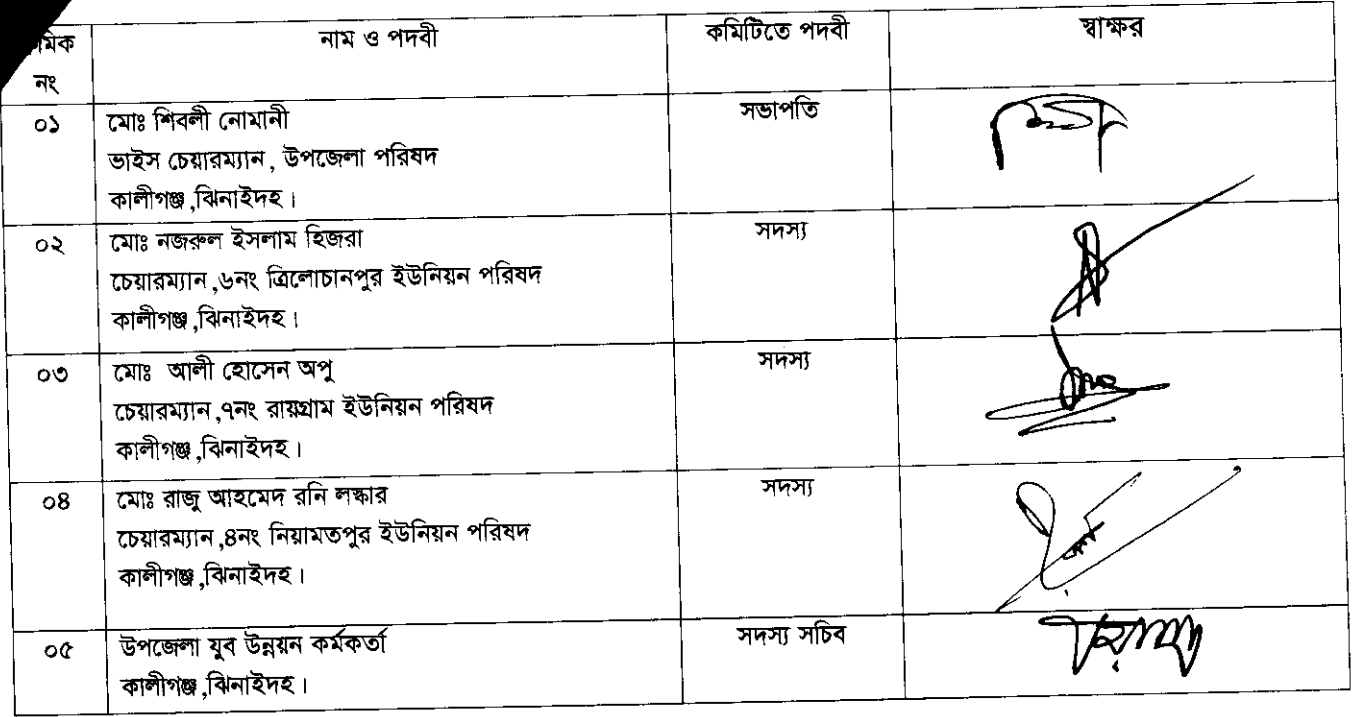 ক্রমিক নং নাম ও পদবী কমিটিতে পদবী স্বাক্ষর
০১ মোঃ শিবলী নোমানী সভাপতি
ভাইস চেয়ারম্যান, উপজেলা পরিষদ
কালীগঞ্জ ,ঝিনাইদহ।
০২ মোঃ নজরুল ইসলাম হিজরা সদস্য
চেয়ারম্যান ,৬নং ত্রিলোচানপুর ইউনিয়ন পরিষদ
কালীগঞ্জ ,ঝিনাইদহ।
০৩ মোঃ আলী হোসেন অপু সদস্য
চেয়ারম্যান ,৭নং রায়গ্রাম ইউনিয়ন পরিষদ
কালীগঞ্জ ,ঝিনাইদহ।
০৪ মোঃ রাজু আহমেদ রনি লস্কার সদস্য
চেয়ারম্যান ,৪নং নিয়ামতপুর ইউনিয়ন পরিষদ
কালীগঞ্জ ,ঝিনাইদহ।
০৫ উপজেলা যুব উন্নয়ন কর্মকর্তা সদস্য সচিব
কালীগঞ্জ ,ঝিনাইদহ।